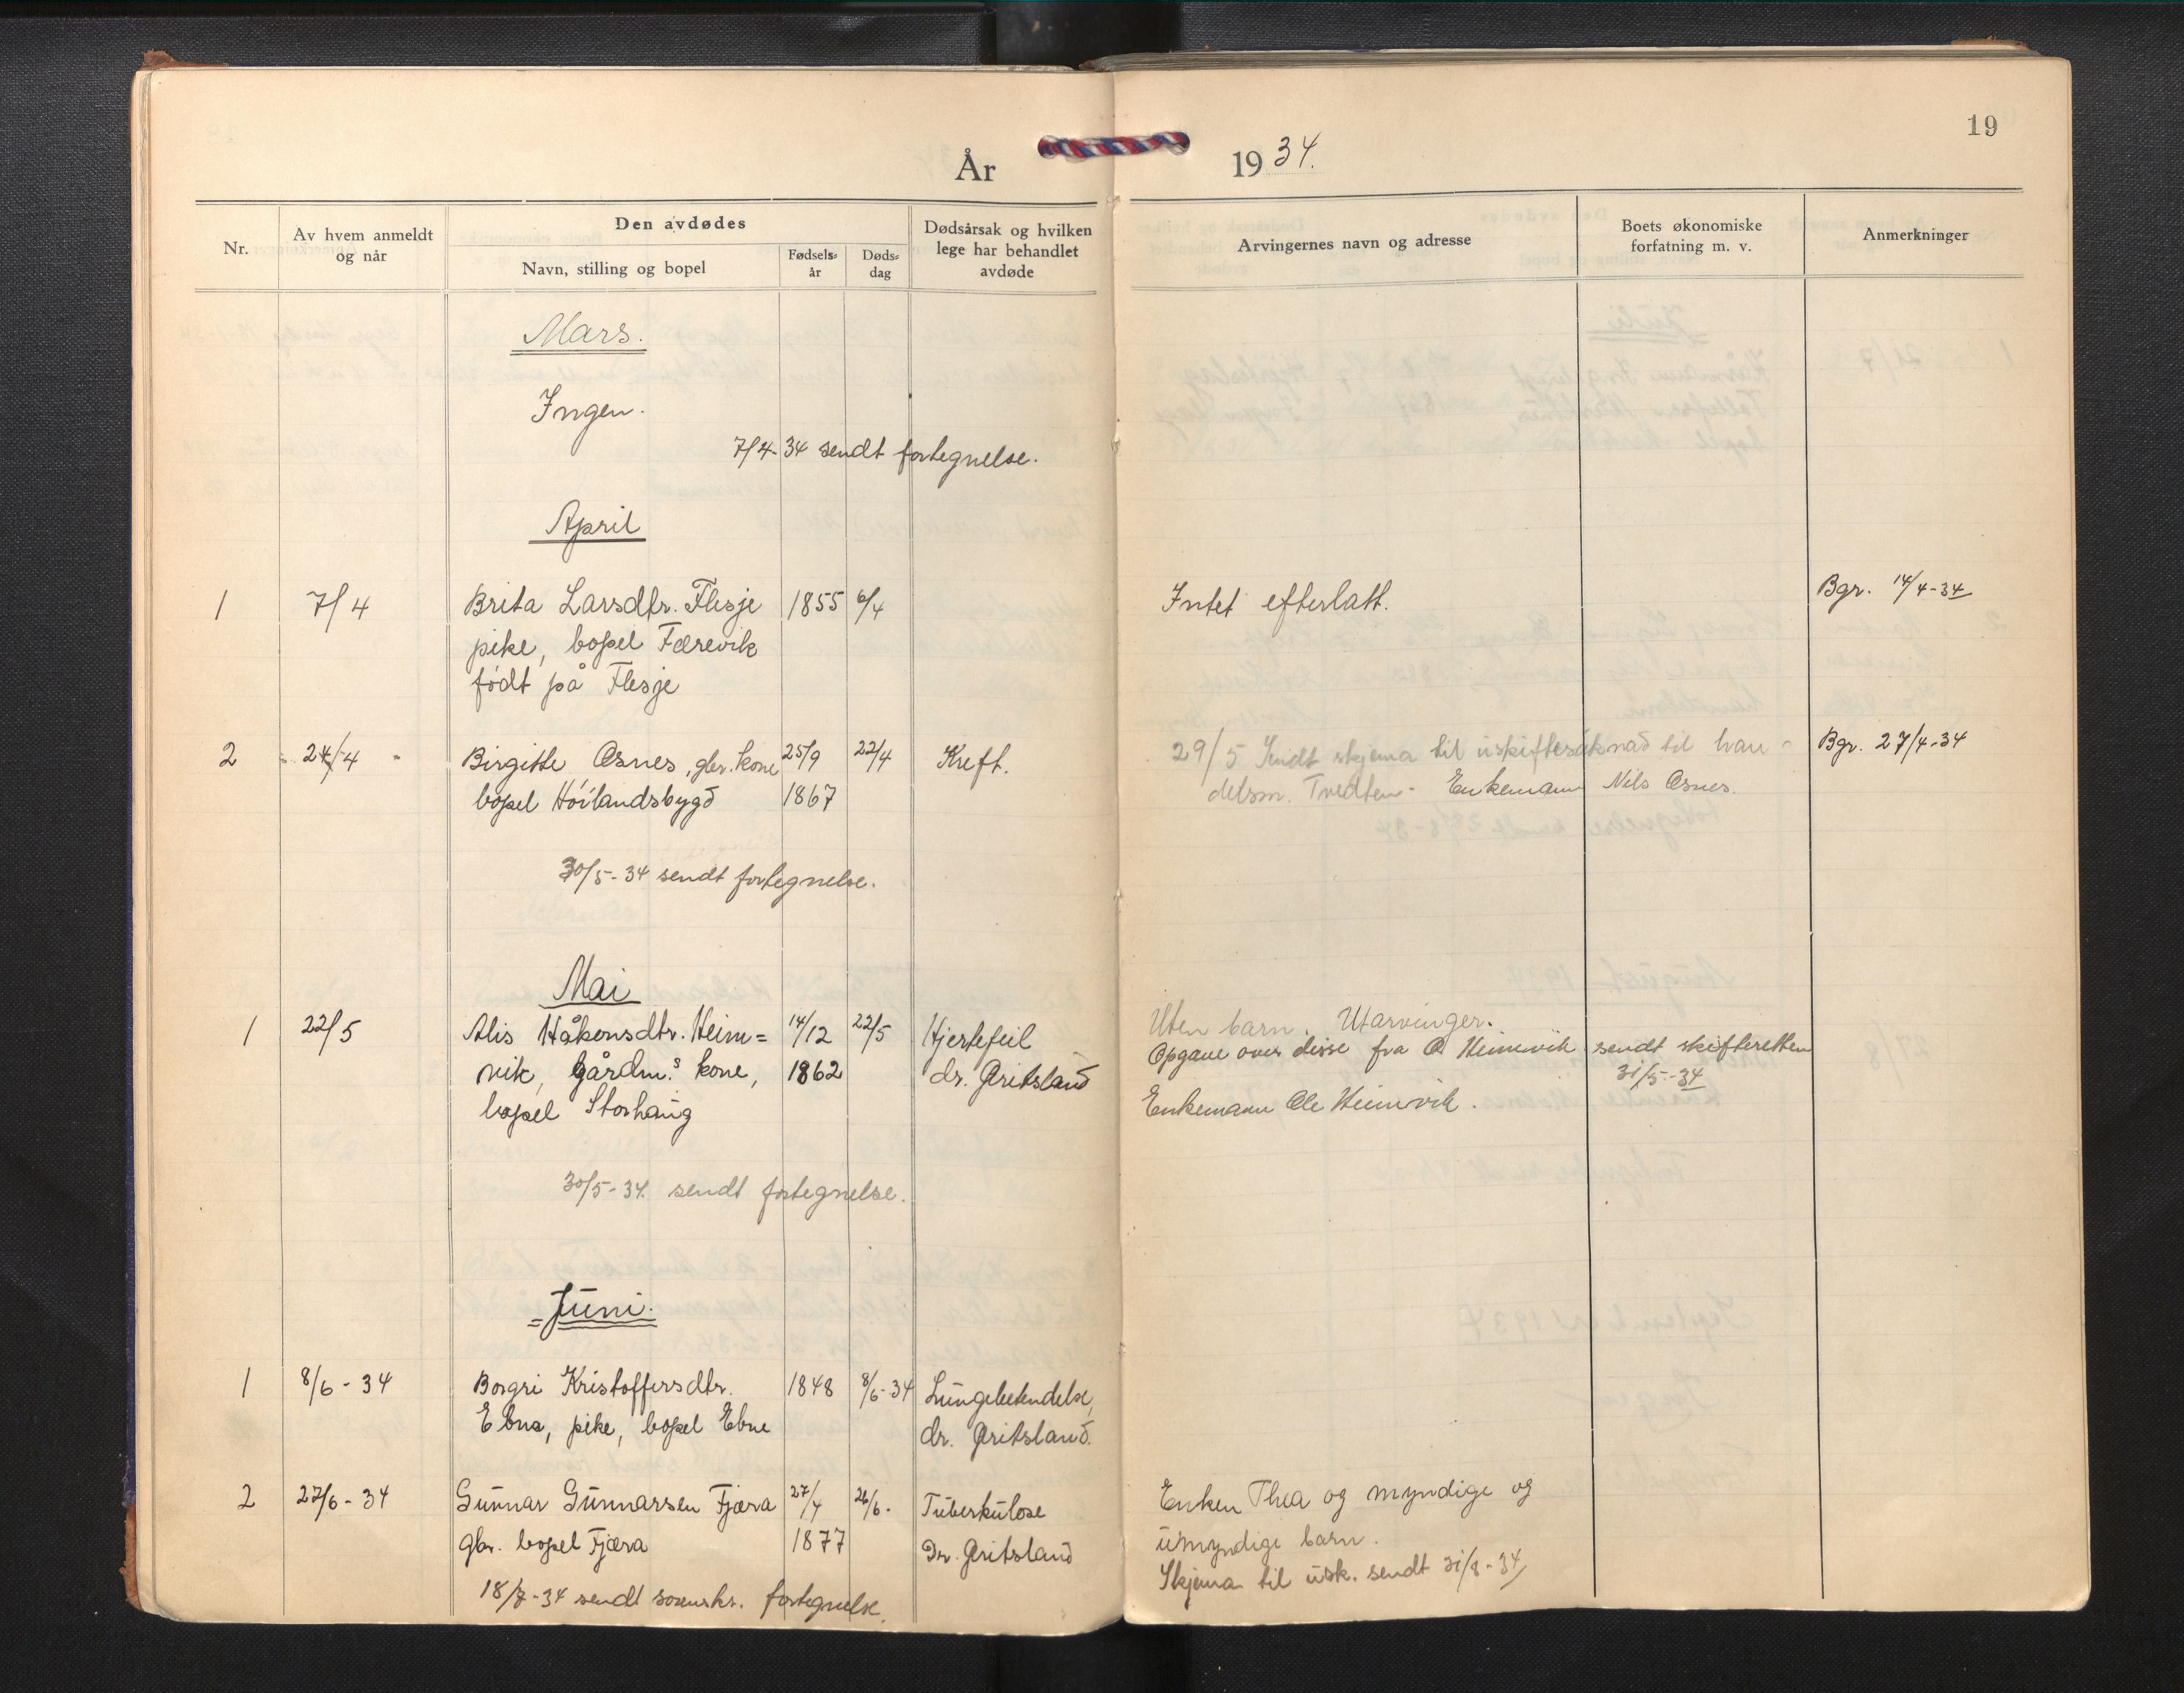 19
År 1934.
Nr.
Av hvem anmeldt
og når
Den avdødes
Navn, stilling og bopel
Fødsels-
år
Døds-
dag
Dødsårsak og hvilken
lege har behandlet
avdøde
Arvingernes navn og adresse
Boets økonomiske
forfatning m. v.
Anmerkninger
Mars.
Ingen.
7/4-34 sendt fortegnelse.
April
1 7/4 Brita Larsdtr. Flesje 1855 6/4 Intet efterlatt. Bgr. 14/4-34
pike, bopel Færevik
født på Flesje
2 24/4 Birgitte Øsnes, gbr. kone 25/9 22/4 Kreft. 29/5 Sendt skjema til uskiftesøknad til han- Bgr. 27/4-34
bopel Høilandsbygd 1867 delsm. Tvedten- Enkemann Nils Øsnes.
30/5-34 sendt fortegnelse.
Mai
1 22/5 Alis Håkonsdtr. Heim= 14/12 22/5 Hjertefeil Uten barn. Utarvinger.
vik, gårdm.s kone, 1862 dr. Gritsland Opgave over disse fra O Heimvik sendt skifteretten
31/5-34
bopel Storhaug Enkemann Ole Heimvik.
30/5-34 sendt fortegnelse.
Juni.
1 8/6-34 Borgri Kristoffersdtr. 1848 8/6-34 Lungebetendelse,
Ebne, pike, bopel Ebne dr. Gritsland.
2 27/6-34 Gunnar Gunnarsen Fjæra 27/4 26/6. Tuberkulose Enken Thea og myndige og
gbr. bopel Fjæra 1877 Dr. Gritsland umyndige barn.
Skjema til usk. sendt 31/8-34
18/7-34 sendt sorenskr. fortegnelse.